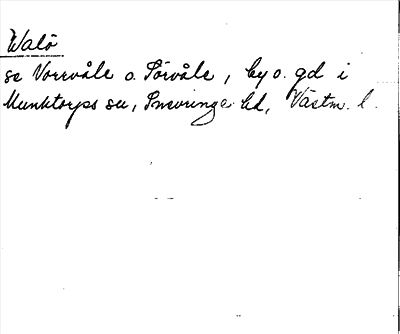 Walö
se Norrvåle o. Sörvåle, by o. gd i
Munktorps sn, Snevringe hd, Västm. l.